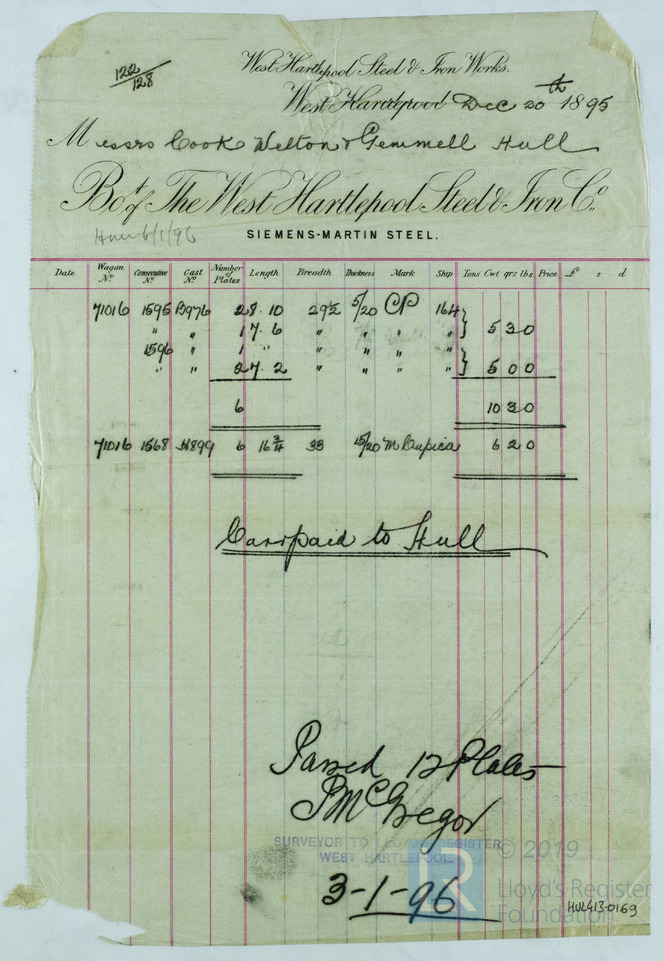 122/128
West Hartlepool Steel & Iron Works.
West Hartlepool Dec 20th 1895
Messrs Cook Welton & Gemmell Hull
Bot of The West Hartlepool Steel & Iron Co.
6/1/96
SIEMENS-MARTIN STEEL.
Date Wagon No. Consecutive No. Cast No. Number of Plates Length Breadth Thickness Mark Ship Tons Cwt qrs lbs Price £ s d
71016 1595 B976 2 8.10 29½ 5/20 CP 164 }
" " 1 7.6 " " " " } 5 3 0
1596 " 1 " " " " "
" " 2 7.2 " " " " } 5 0 0
6 10 3 0
71016 1568 H899 6 16¾ 33 15/20 6 2 0
Carr paid to Hull
Passed 12 Plates
J McGregor
SURVEYOR TO LLOYD'S REGISTER
WEST HARTLEPOOL.
3-1-96
LR
© 2019
Lloyd's Register
Foundation
HUL413-0169